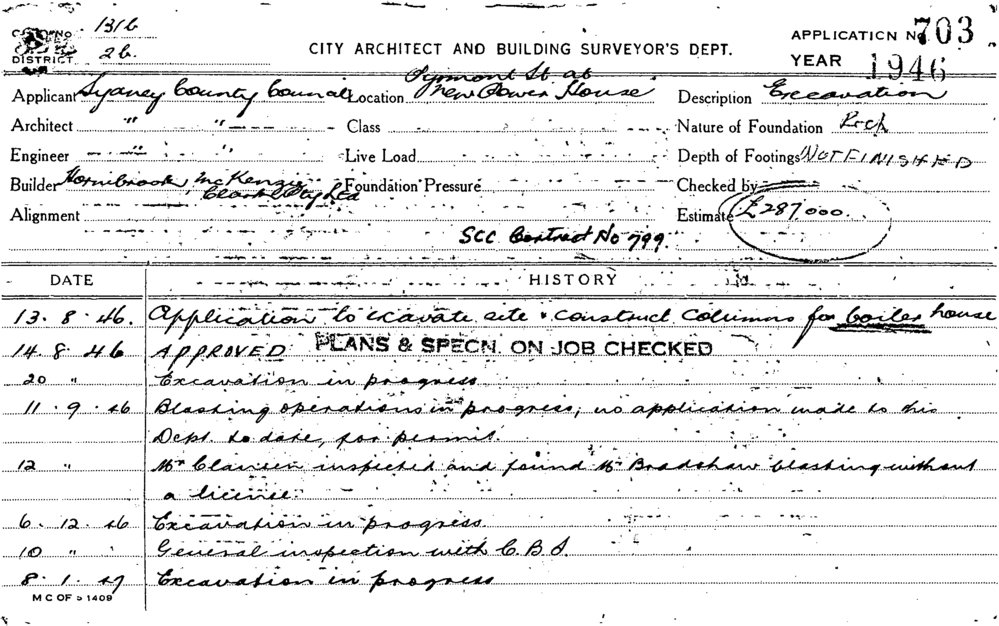 1316
DISTRICT 26.
CITY ARCHITECT AND BUILDING SURVEYOR'S DEPT.
APPLICATION No 703
YEAR 1946
Applicant Sydney County Council Location Pyrmont St. at New Power House Description Excavation
Architect " " Class Nature of Foundation Rock
Engineer " " Live Load Depth of Footings NOT FINISHED
Builder Hornibrook, McKenzie Clark Pty Ltd Foundation Pressure Checked by
Alignment Estimate £287,000
SCC Contract No 799.
DATE HISTORY
13. 8. 46. Application to excavate site & construct columns for boiler house
14. 8. 46 APPROVED PLANS & SPECN. ON JOB CHECKED
20 " Excavation in progress
11. 9. 46 Blasting operations in progress; no application made to this
Dept. to date, for permit.
12 " Mr Clausen inspected and found Mr Bradshaw blasting without
a license.
6. 12. 46 Excavation in progress
10 " General inspection with C.B.S.
8. 1. 47 Excavation in progress
M C OF S 1409